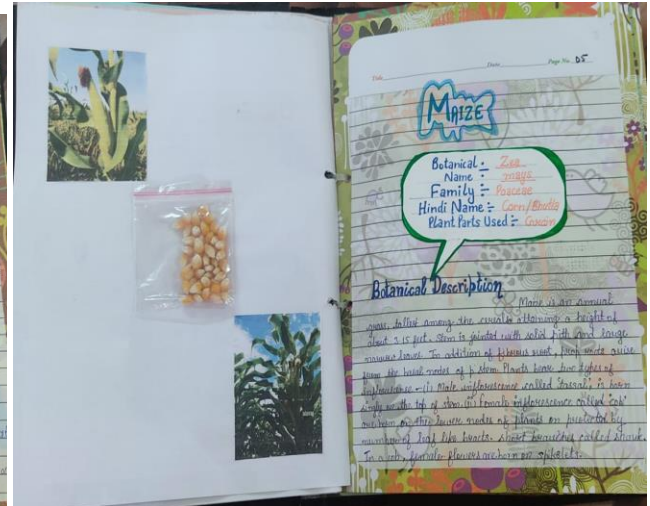 Title
Date
Page No. 05
MAIZE
Botanical :- Zea
Name :- mays
Family :- Poaceae
Hindi Name :- Corn/Bhutta
Plant Parts Used :- Grain
Botanical Description
Maize is an annual
grass, tallest among the cereals attaining a height of
about 3.15 feet. Stem is jointed with solid pith and large
narrow leaves. In addition of fibrous root, prop roots arise
from the basal nodes of stem. Plants bear two types of
inflorescence - (i) Male inflorescence called is born
singly on the top of stem (ii) female inflorescence called 'cob'
are born on the lower nodes of plants on protected by
number of leaf like bracts, short branches called shank.
In a cob, female flowers are born on spikelets.